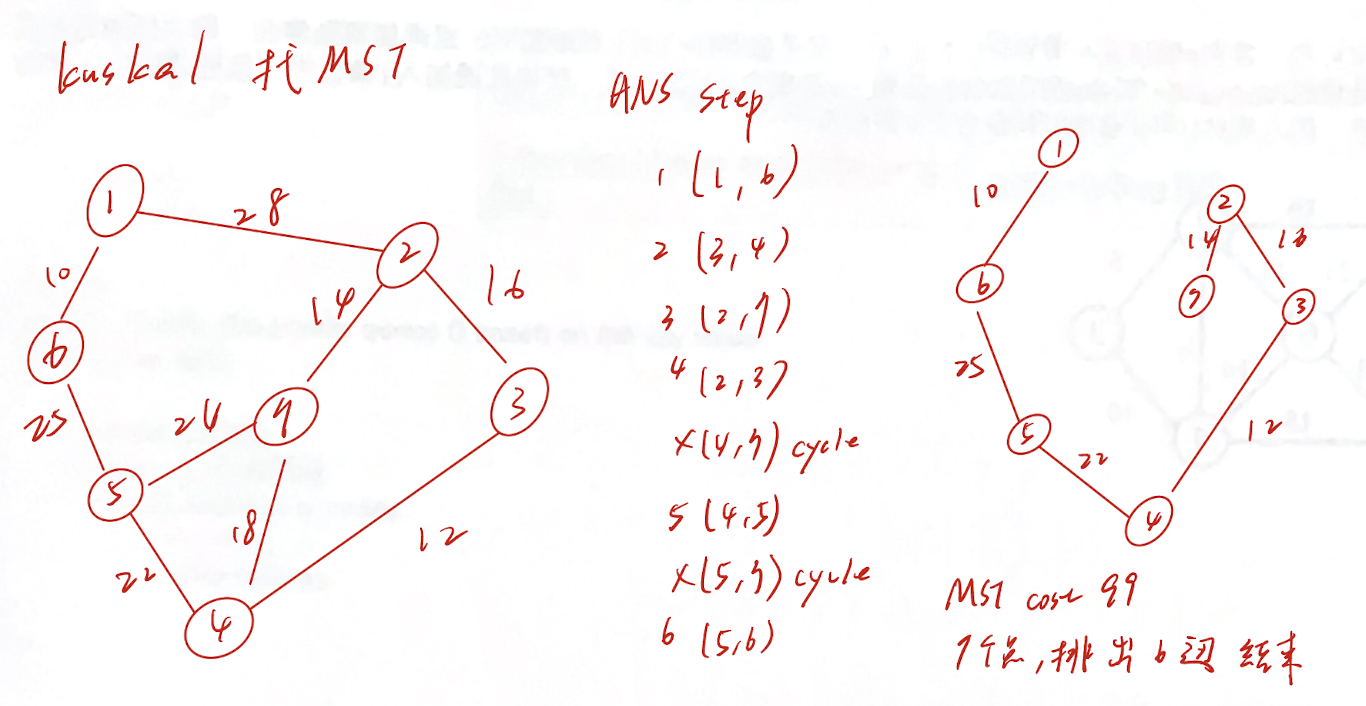 kuskal 找 MST
1
28
2
10
14
16
6
9
3
25
24
5
18
12
22
4
ANS step
1 (1,6)
2 (3,4)
3 (2,9)
4 (2,3)
x(4,9) cycle
5 (4,5)
x(5,9) cycle
6 (5,6)
1
10
2
14
16
6
9
3
25
5
12
22
4
MST cost 99
7个点,排出6边結束